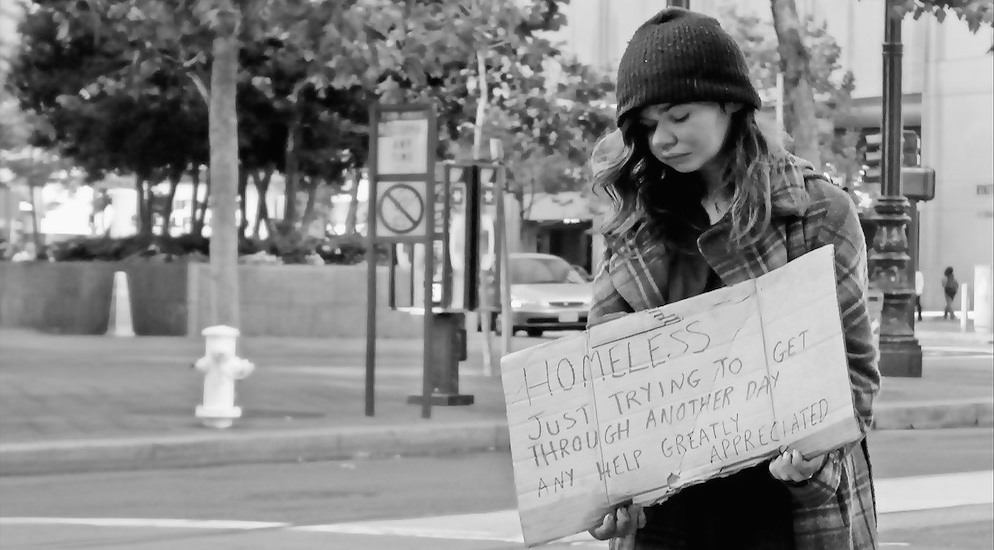 HOMELESS
JUST TRYING TO GET
THROUGH ANOTHER DAY
ANY HELP GREATLY
APPRECIATED